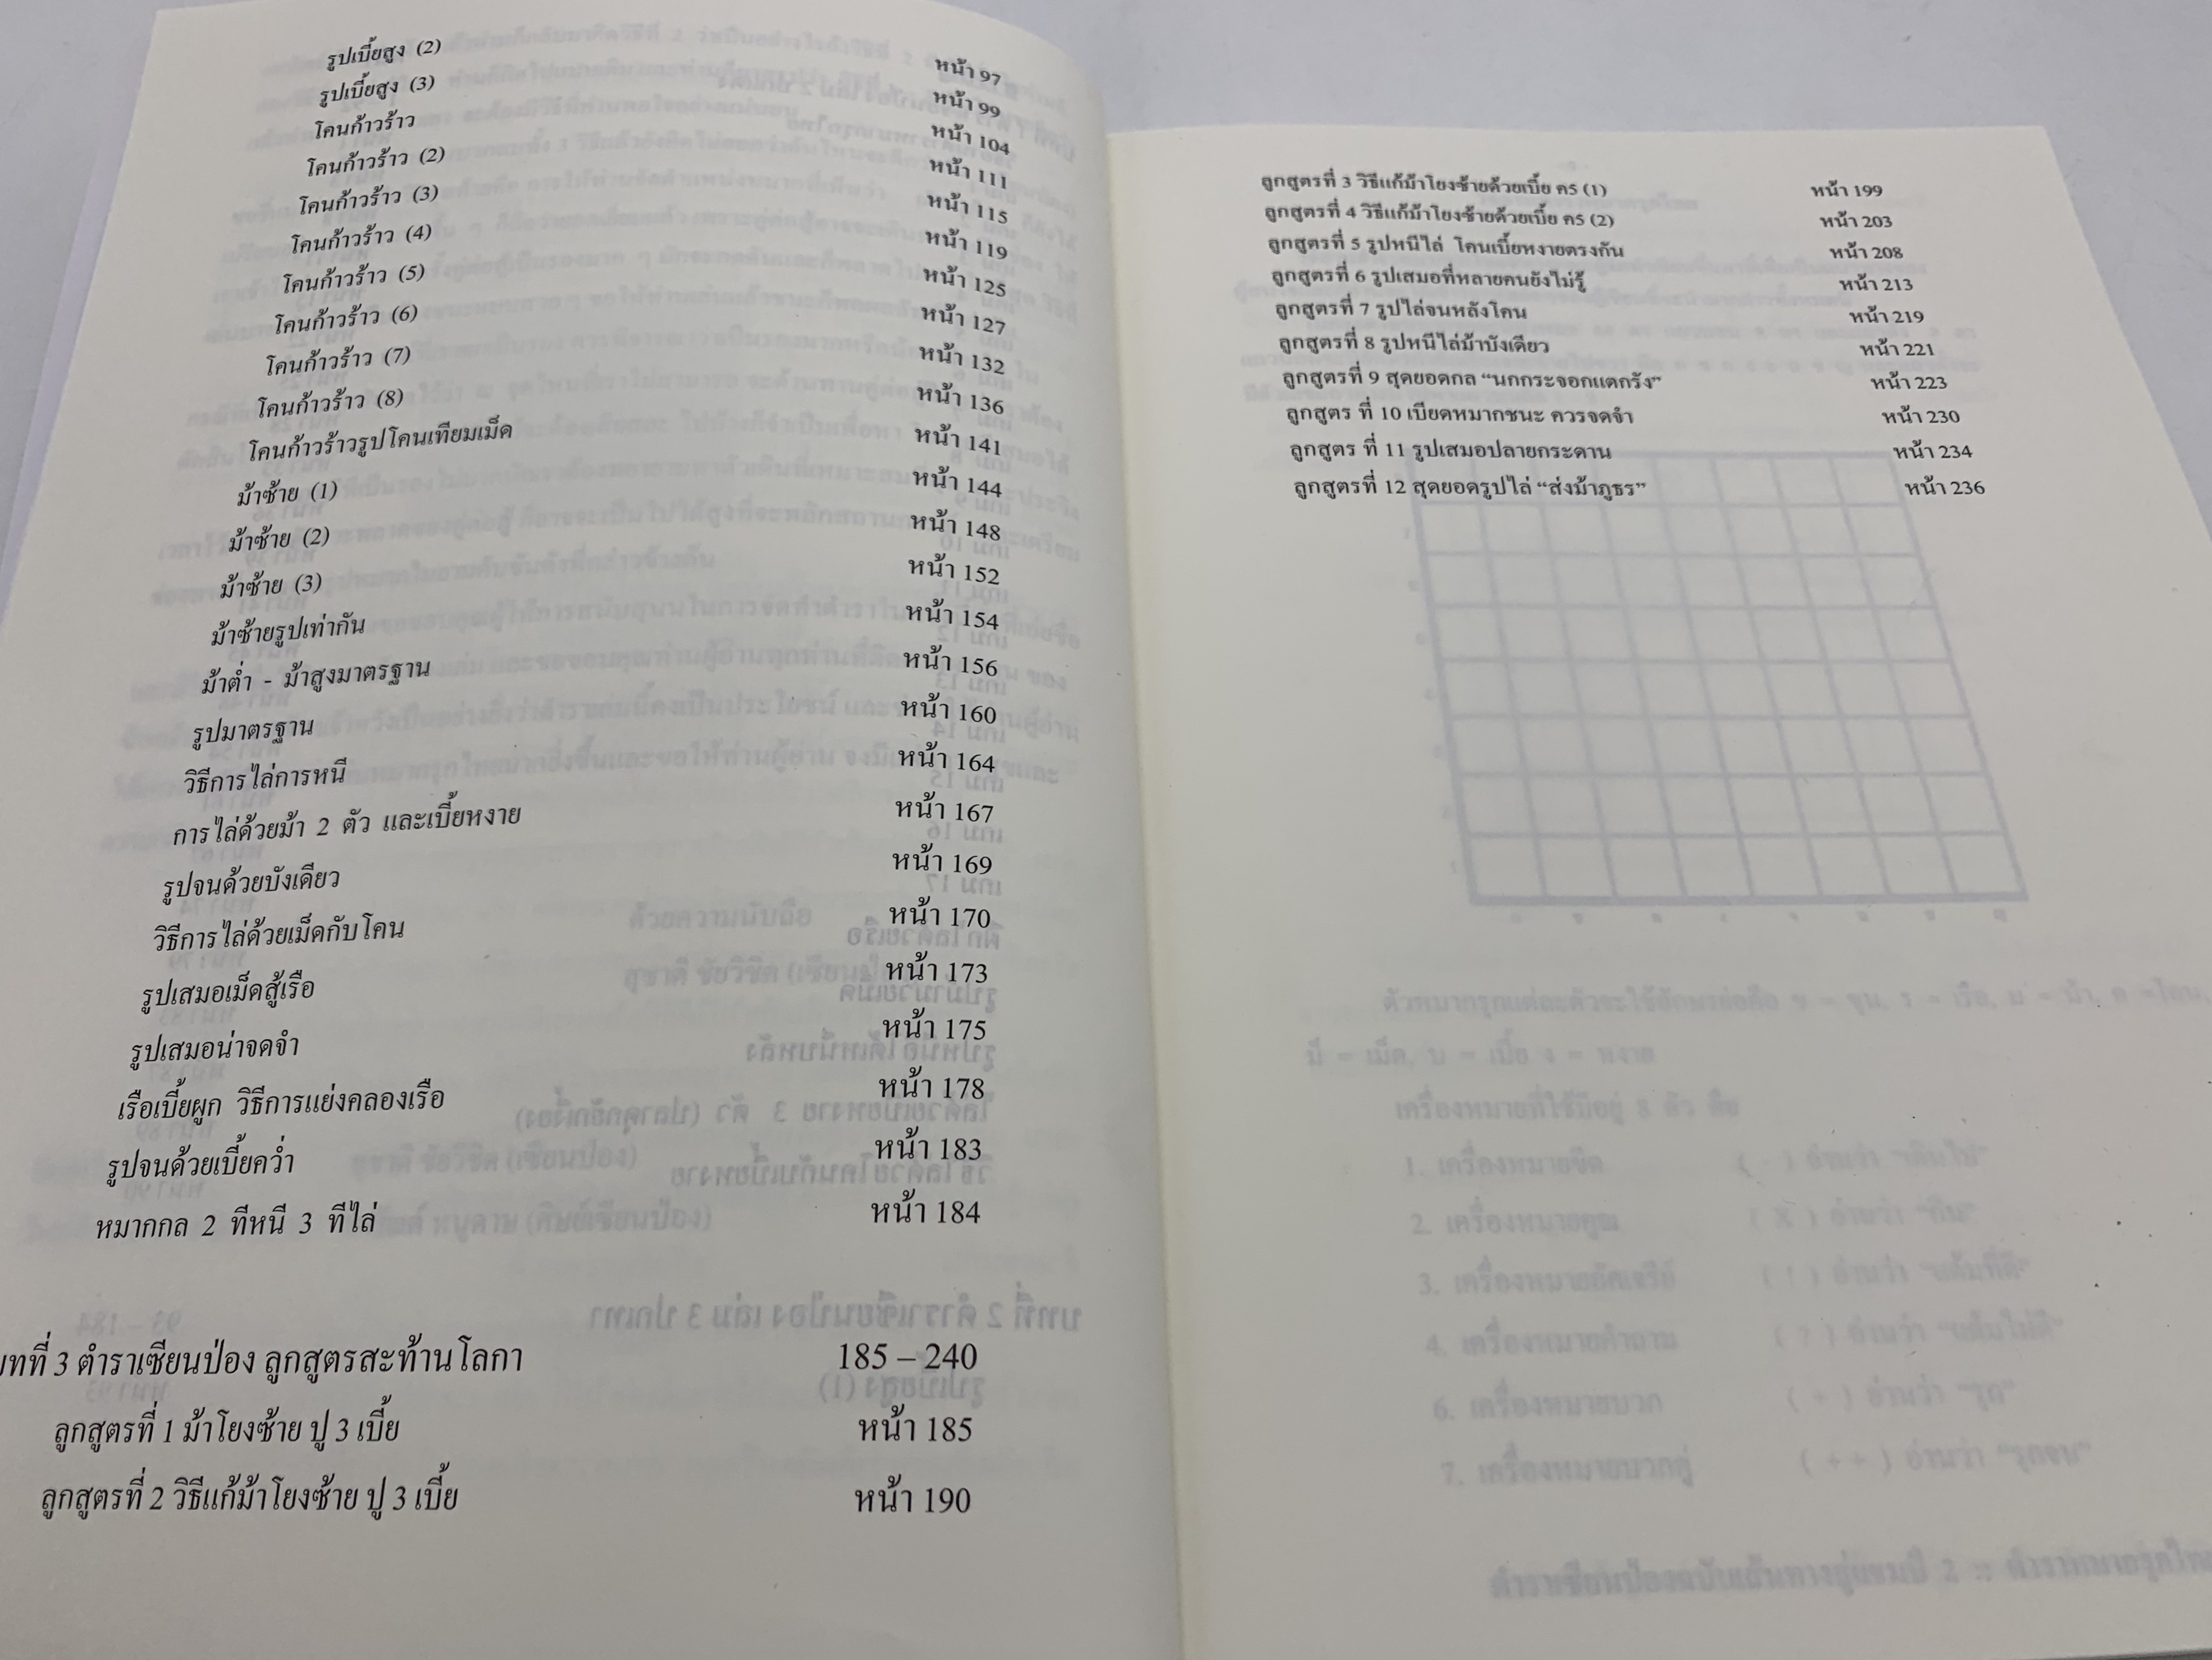 รูปเบี้ยสูง (2) หน้า 97
รูปเบี้ยสูง (3) หน้า 99
โคนก้าวร้าว หน้า 104
โคนก้าวร้าว (2) หน้า 111
โคนก้าวร้าว (3) หน้า 115
โคนก้าวร้าว (4) หน้า 119
โคนก้าวร้าว (5) หน้า 125
โคนก้าวร้าว (6) หน้า 127
โคนก้าวร้าว (7) หน้า 132
โคนก้าวร้าว (8) หน้า 136
โคนก้าวร้าวรูปโคนเทียมเม็ด หน้า 141
ม้าซ้าย (1) หน้า 144
ม้าซ้าย (2) หน้า 148
ม้าซ้าย (3) หน้า 152
ม้าซ้ายรูปเท่ากัน หน้า 154
ม้าต่ำ - ม้าสูงมาตรฐาน หน้า 156
รูปมาตรฐาน หน้า 160
วิธีการไล่การหนี หน้า 164
การไล่ด้วยม้า 2 ตัว และเบี้ยหงาย หน้า 167
รูปจนด้วยบังเดียว หน้า 169
วิธีการไล่ด้วยเม็ดกับโคน หน้า 170
รูปเสมอเม็ดสู้เรือ หน้า 173
รูปเสมอน่าจดจำ หน้า 175
เรือเบี้ยผูก วิธีการแย่งคลองเรือ หน้า 178
รูปจนด้วยเบี้ยคว่ำ หน้า 183
หมากกล 2 ทีหนี 3 ทีไล่ หน้า 184
บทที่ 3 ตำราเซียนป่อง ลูกสูตรสะท้านโลกา 185 – 240
ลูกสูตรที่ 1 ม้าโยงซ้าย ปู 3 เบี้ย หน้า 185
ลูกสูตรที่ 2 วิธีแก้ม้าโยงซ้าย ปู 3 เบี้ย หน้า 190
ลูกสูตรที่ 3 วิธีแก้ม้าโยงซ้ายด้วยเบี้ย ค5 (1) หน้า 199
ลูกสูตรที่ 4 วิธีแก้ม้าโยงซ้ายด้วยเบี้ย ค5 (2) หน้า 203
ลูกสูตรที่ 5 รูปหนีไล่ โคนเบี้ยหงายตรงกัน หน้า 208
ลูกสูตรที่ 6 รูปเสมอที่หลายคนยังไม่รู้ หน้า 213
ลูกสูตรที่ 7 รูปไล่จนหลังโคน หน้า 219
ลูกสูตรที่ 8 รูปหนีไล่ม้าบังเดียว หน้า 221
ลูกสูตรที่ 9 สุดยอดกล “นกกระจอกแตกรัง” หน้า 223
ลูกสูตร ที่ 10 เบียดหมากชนะ ควรจดจำ หน้า 230
ลูกสูตร ที่ 11 รูปเสมอปลายกระดาน หน้า 234
ลูกสูตรที่ 12 สุดยอดรูปไล่ “ส่งม้าภูธร” หน้า 236